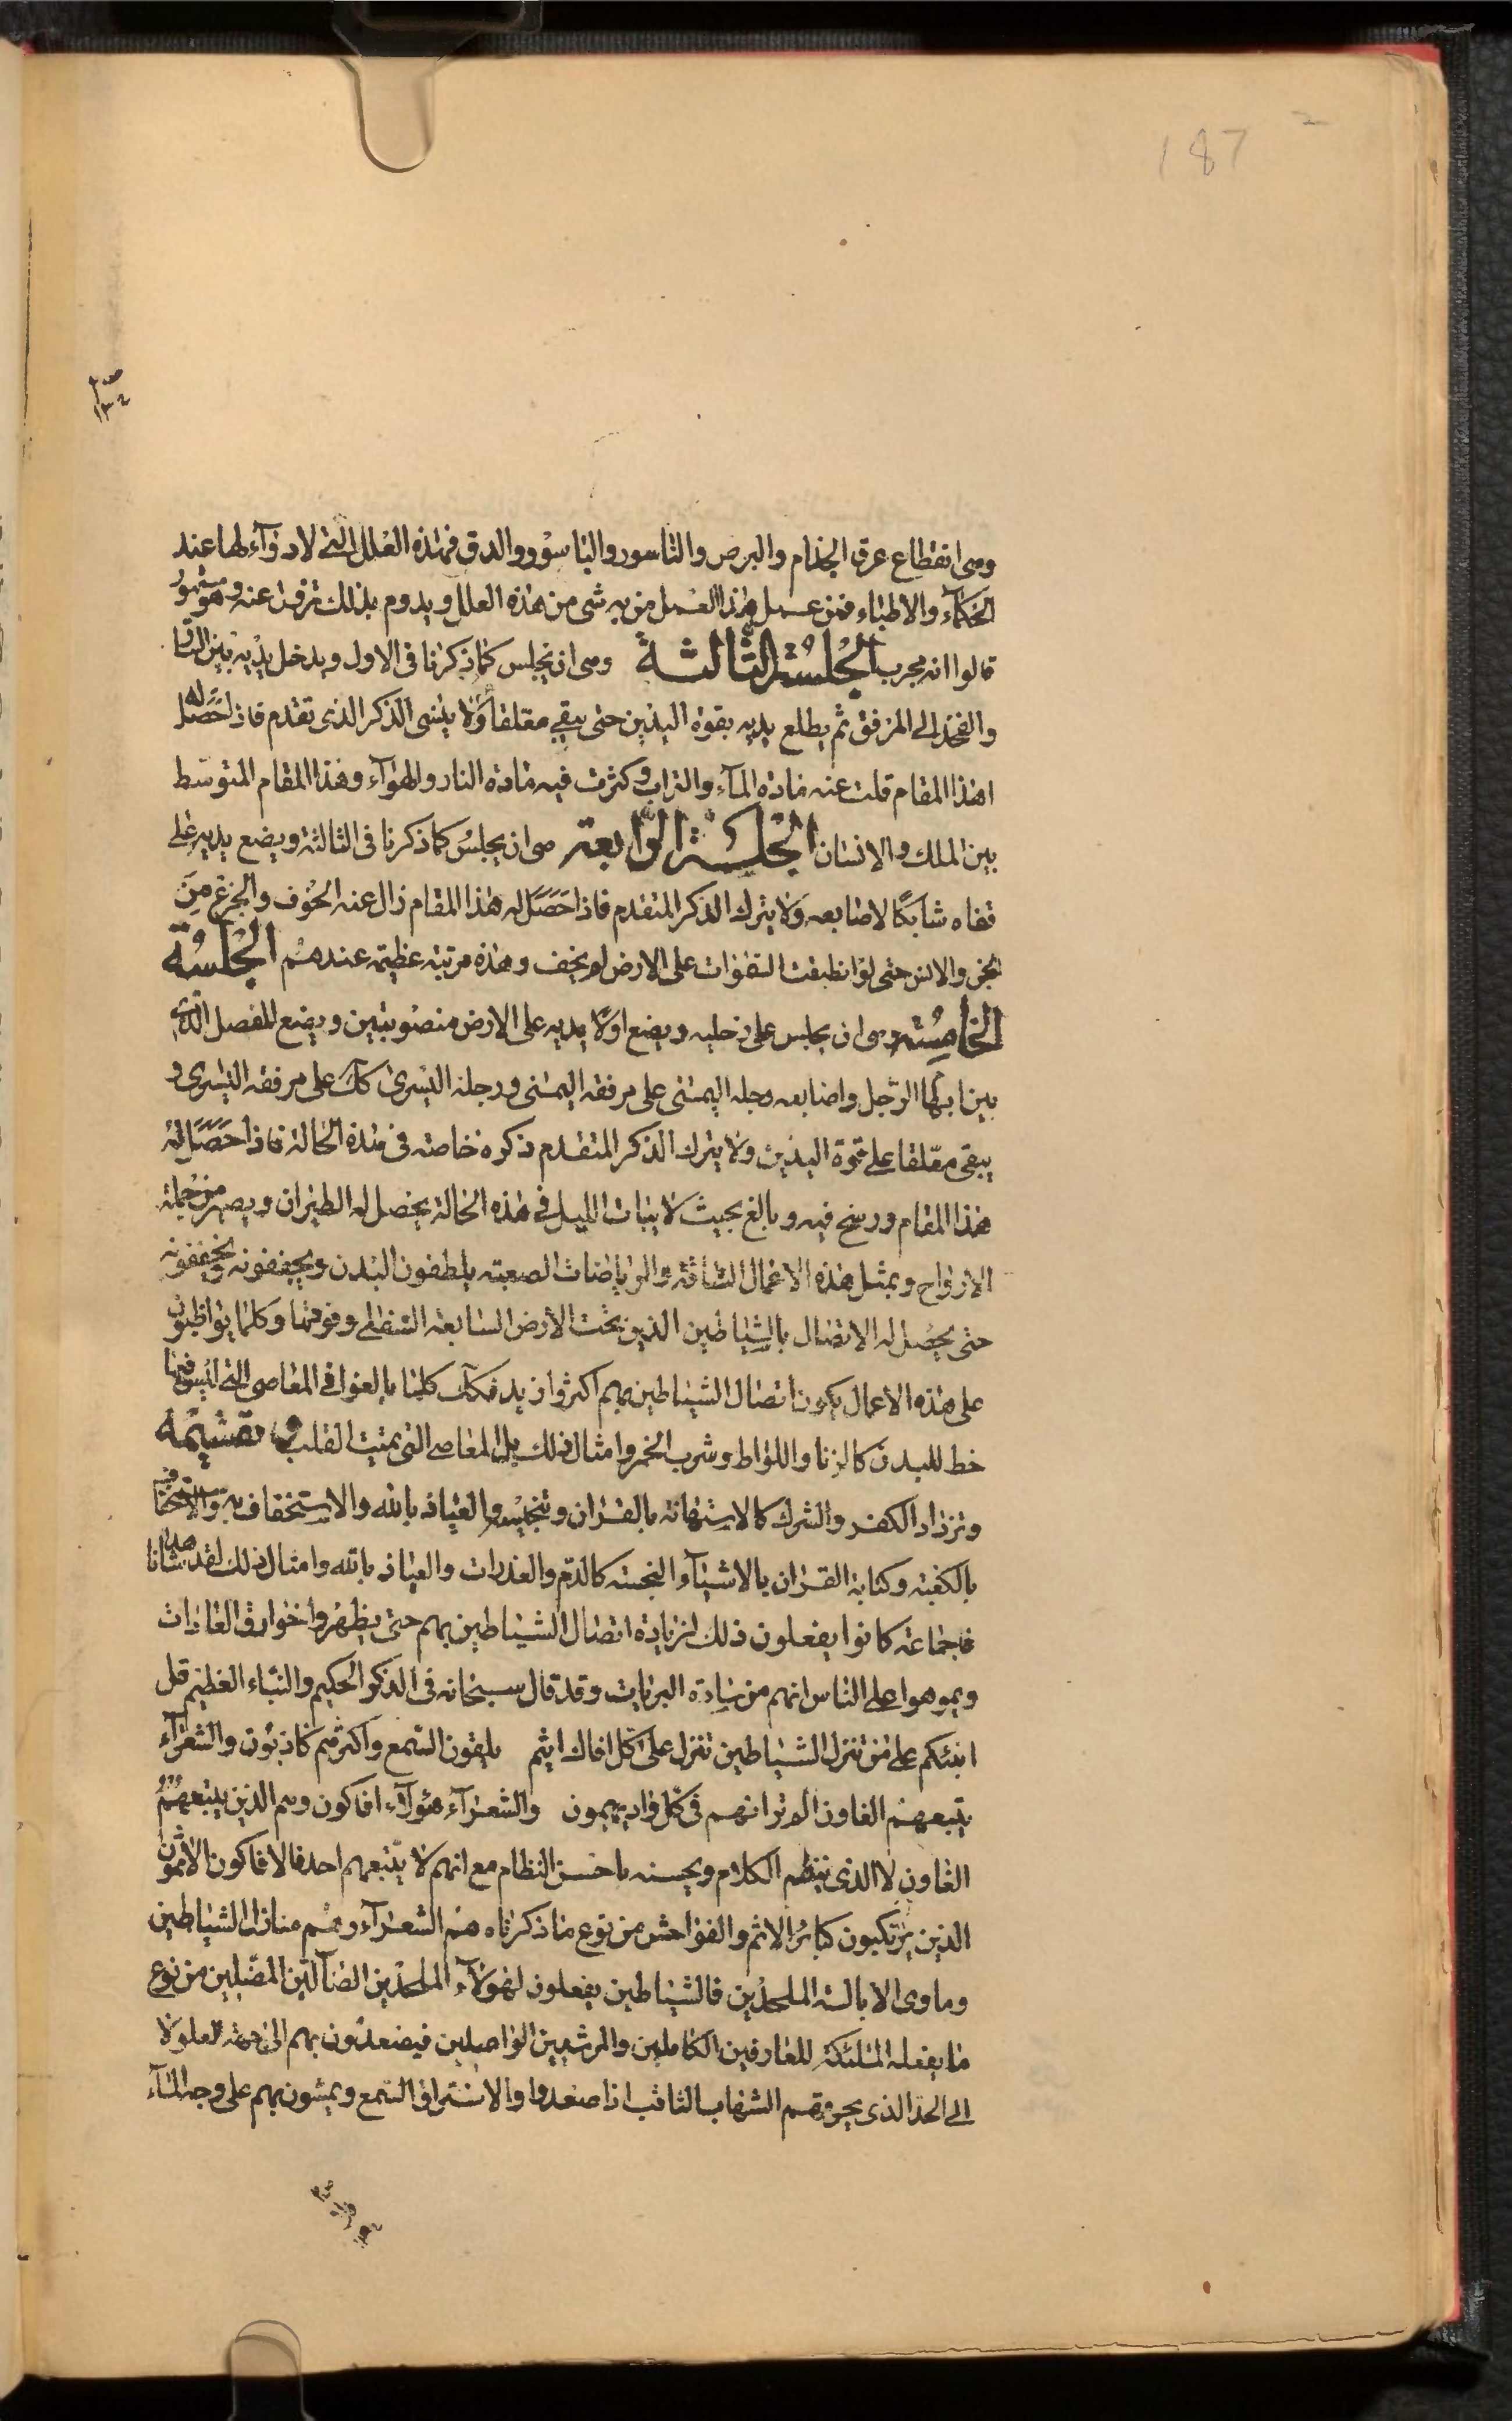 187
وهى انقطاع عرق الجذام والبرص والناسور والباسور والدق فهذه العلل التى لا دوآء لها عند
الحكمآء والاطباء فمن عمل هذا العمل من به شى من هذه العلل ويدوم بذلك ترفع عنه وهو مشهور
قالوا انه مجرب الجلسة الثالثة وهى ان يجلس كما ذكرنا فى الاول ويدخل يديه بين الساق
والفخذ الى المرفق ثم يطلع يديه بقوة اليدين حتى يبقى معلقا ولا ينسى الذكر الذى تقدم فاذا حصل له
هذا المقام قلت عنه مادة المآء والتراب وكثرت فيه مادة النار والهوآء وهذا المقام المتوسط
بين الملك والانسان الجلسة الرابعة هى ان يجلس كما ذكرنا فى الثالثة ويضع يديه على
قفاه شابكا لاصابعه ولا يترك الذكر المتقدم فاذا حصل له هذا المقام زال عنه الخوف والجزع من
الجن والانس حتى لو انطبقت السموات على الارض لم يخف وهذه مرتبة عظيمة عندهم الجلسة
الخامسة وهى ان يجلس على رجليه ويضع اولا يديه على الارض منصوبتين ويضع المفصل الذى
بين ابهام الرجل واصابعه رجله اليمنى على مرفقه اليمنى ورجله اليسرى كك على مرفقه اليسرى و
يبقى معلقا على قوة اليدين ولا يترك الذكر المتقدم ذكره خاصة فى هذه الحالة فاذا حصل له
هذا المقام ورسخ فيه وبالغ بحيث لا يبات الليل فى هذه الحالة يحصل له الطيران ويصير من جملة
الارواح وبمثل هذه الاعمال الشاقة والرياضات الصعبة يلطفون البدن ويجففونه ويخففونه
حتى يحصل له الاتصال بالشياطين الذين تحت الارض السابعة السفلى وفوقها وكلما يواظبون
على هذه الاعمال يكون اتصال الشياطين بهم اكثر وازيد فكك كلما بالغوا فى المعاصى التى ليس فيها
حظ للبدن كالزنا واللواط وشرب الخمر وامثال ذلك بل المعاصى التى تميت القلب وتقسيه
وتزداد الكفر والشرك كالاستهانة بالقران وتنجيسه والعياذ بالله والاستخفاف به والاستخفاف
بالكعبة وكتابة القران بالاشيآء النجسة كالدم والعذرات والعياذ بالله وامثال ذلك لقد شاهدنا
جماعة كانوا يفعلون ذلك لزيادة اتصال الشياطين بهم حتى يظهروا خوارق العادات
ويموهوا على الناس انهم من سادة البريات وقد قال سبحانه فى الذكر الحكيم والنباء العظيم قل
انبئكم على من تنزل الشياطين تنزل على كل افاك اثيم يلقون السمع واكثرهم كاذبون والشعرآء
يتبعهم الغاون الم تر انهم فى كل واد يهيمون والشعرآء هؤلآء افاكون وهم الذين يتبعهم
الغاون لا الذى ينظم الكلام ويحسنه باحسن النظام مع انهم لا يتبعهم احد فالافاكون الاثمون
الذين يرتكبون كبائر الاثم والفواحش من نوع ما ذكرناه هم الشعرآء وهم منازل الشياطين
وماوى الابالسة الملحدين فالشياطين يفعلون لهؤلآء الملحدين الضآلين المضلين من نوع
ما يفعله الملئكة للعارفين الكاملين والمرشدين الواصلين فيصعدون بهم الى جهة العلو لا
الى الحد الذى يحرقهم الشهاب الثاقب اذا صعدوا والاستراق السمع ويمشون بهم على وجه المآء